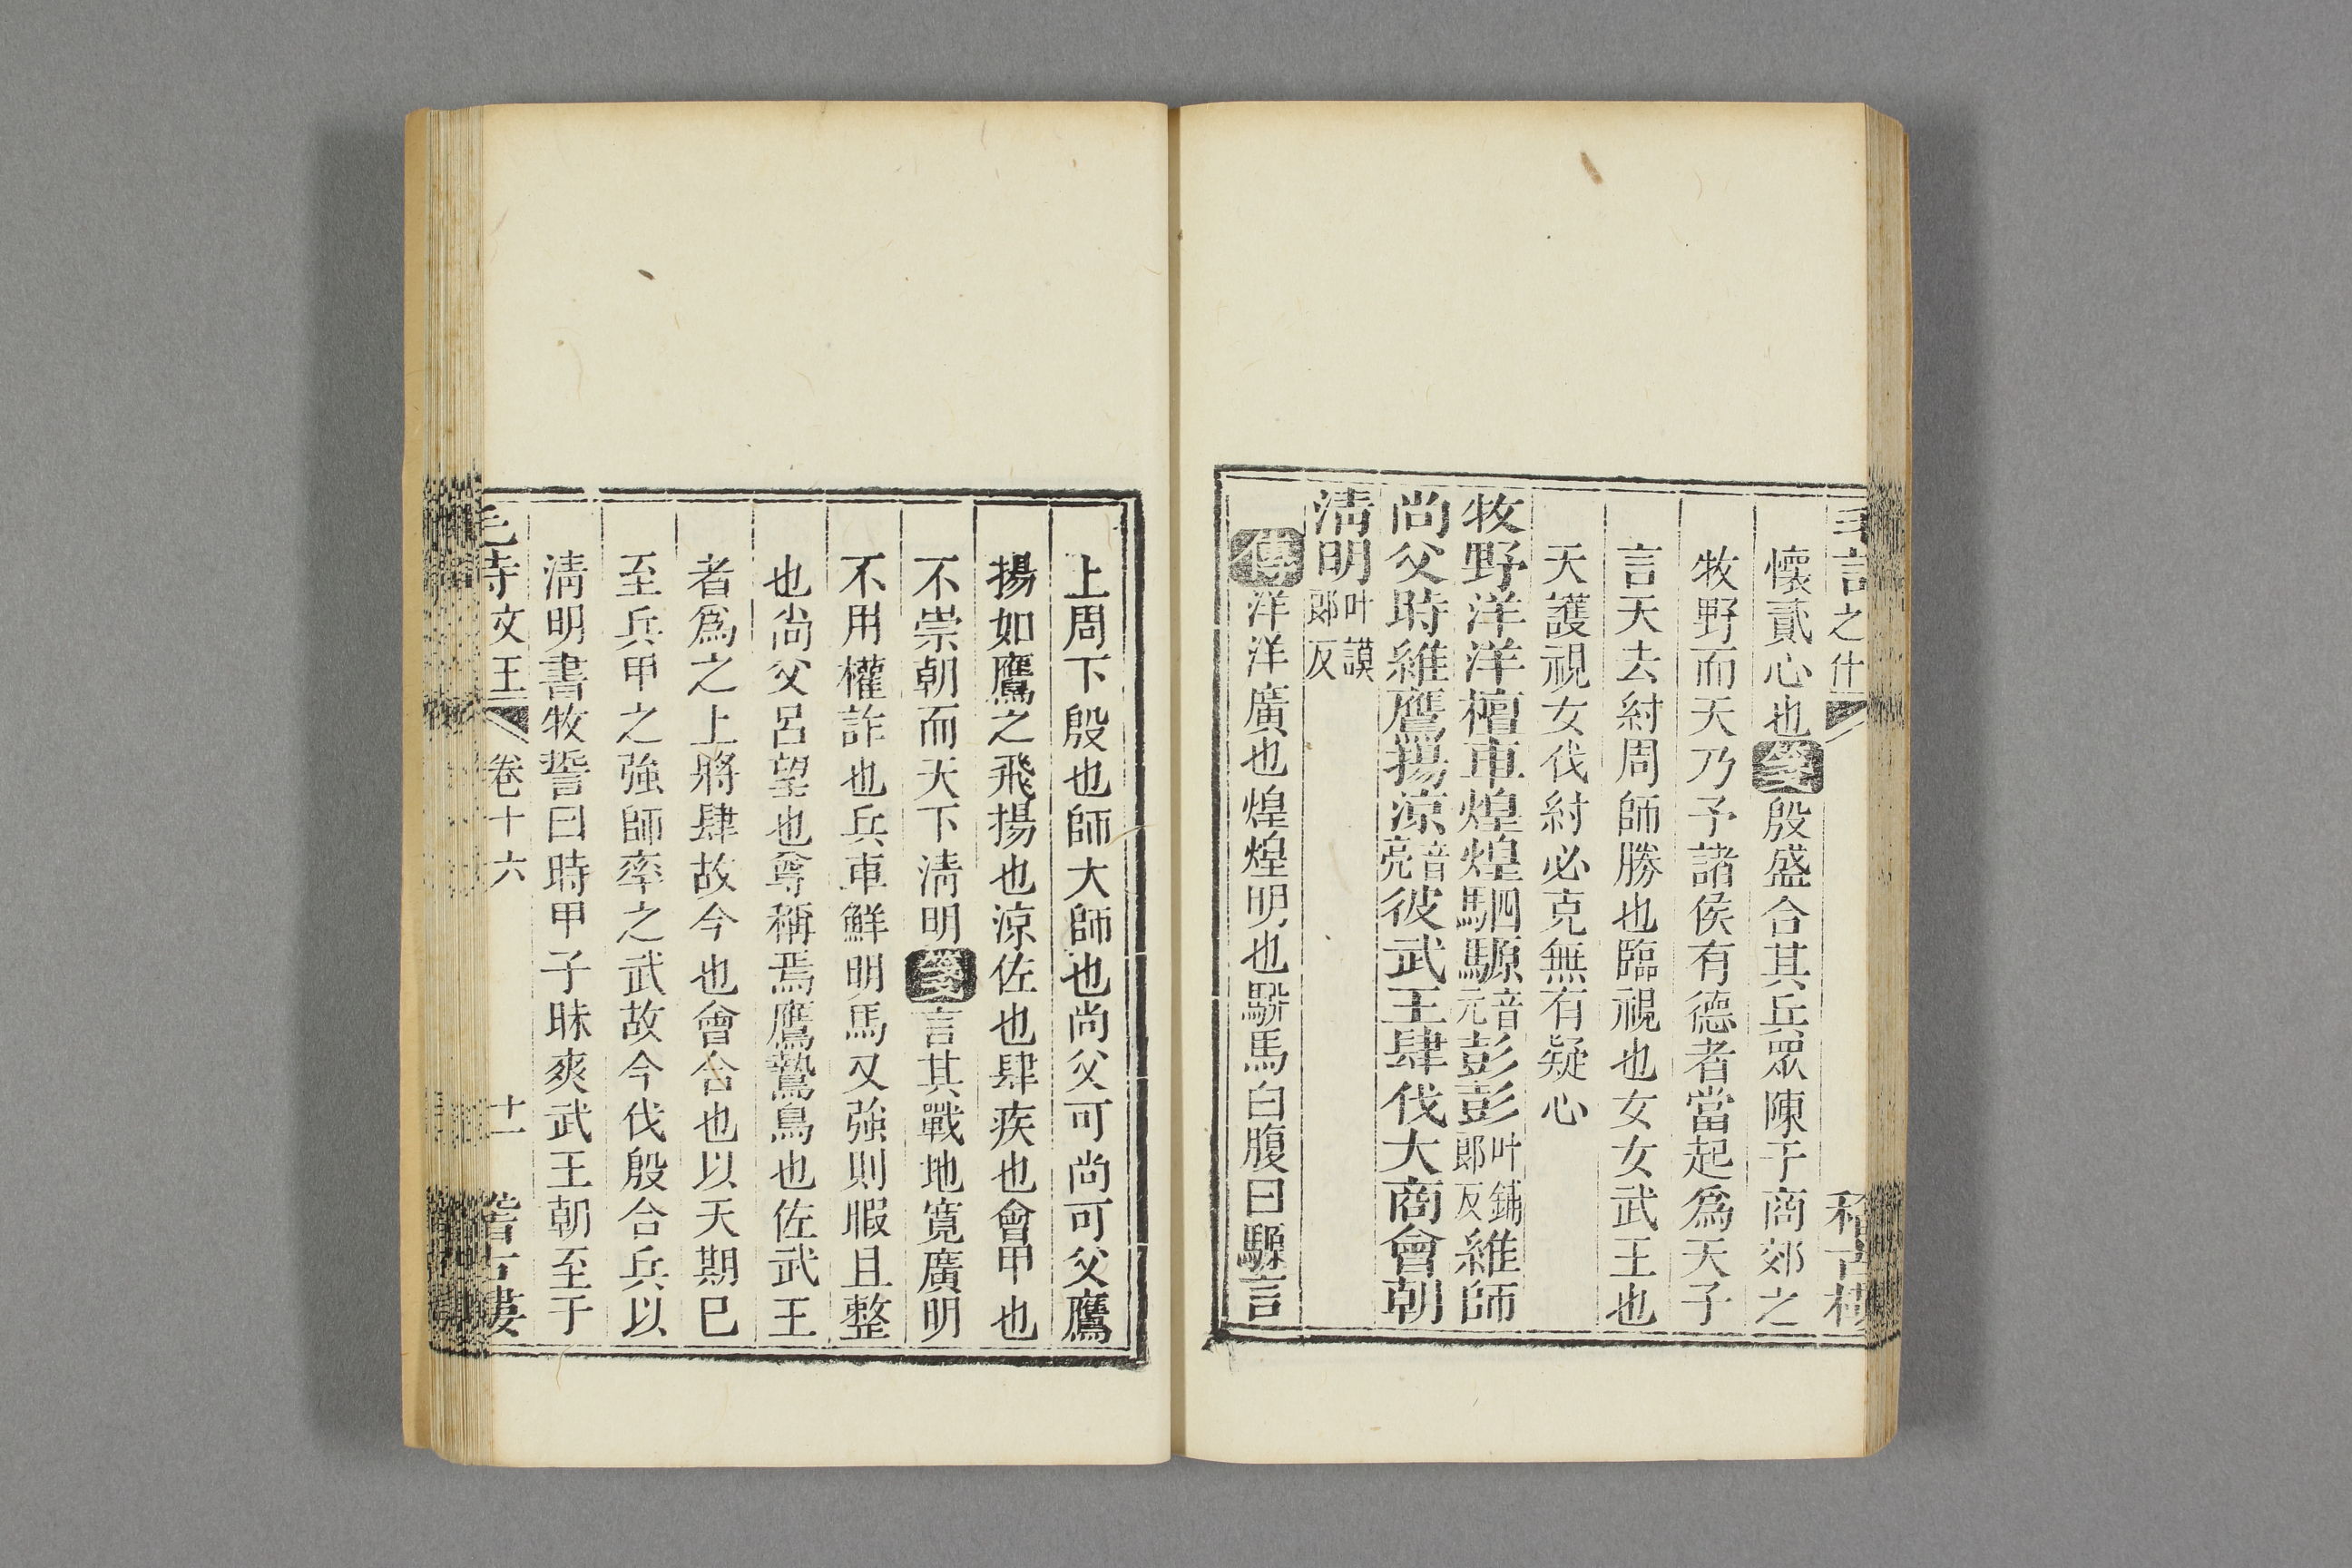 之什
懷貳心也箋殷盛合其兵眾陳于商郊之
牧野而天乃予諸侯有德者當起爲天子
言天去紂周師勝也臨視也女女武王也
天護視女伐紂必克無有疑心
牧野洋洋檀車煌煌駟騵音元彭彭叶鋪郎反維師
尚父時維鷹揚涼音亮彼武王肆伐大商會朝
淸明叶謨郎反
傳洋洋廣也煌煌明也駵馬白腹曰騵言
上周下殷也師大師也尚父可尚可父鷹
揚如鷹之飛揚也涼佐也肆疾也會甲也
不崇朝而天下淸明箋言其戰地寬廣明
不用權詐也兵車鮮明馬又強則暇且整
也尚父呂望也尊稱焉鷹鷙鳥也佐武王
者爲之上將肆故今也會合也以天期已
至兵甲之強師率之武故今伐殷合兵以
淸明書牧誓曰時甲子昧爽武王朝至于
文王 卷十六 十一